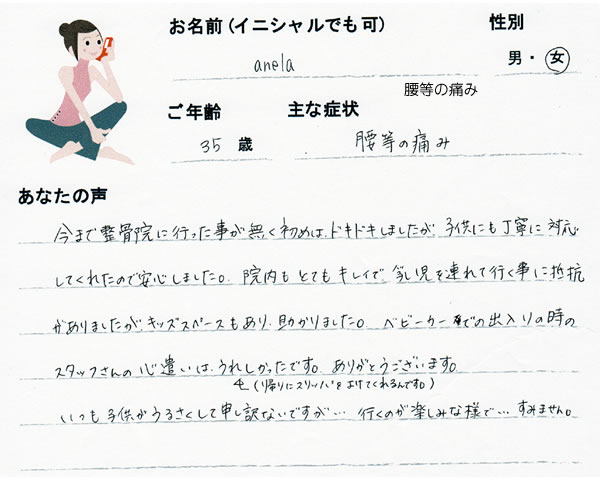 お名前(イニシャルでも可)
性別
anela
男・女
腰等の痛み
ご年齢
主な症状
35 歳
腰等の痛み
あなたの声
今まで整骨院に行った事が無く初めは、ドキドキしましたが、子供にも丁寧に対応
してくれたので安心しました。院内もとてもキレイで、乳児を連れて行く事に抵抗
がありましたが、キッズスペースもあり、助かりました。ベビーカーでの出入りの時の
スタッフさんの心遣いは、うれしかったです。ありがとうございます。
(帰りにスリッパをよけてくれるんです。)
いつも子供がうるさくして申し訳ないですが… 行くのが楽しみな様で… すみません。